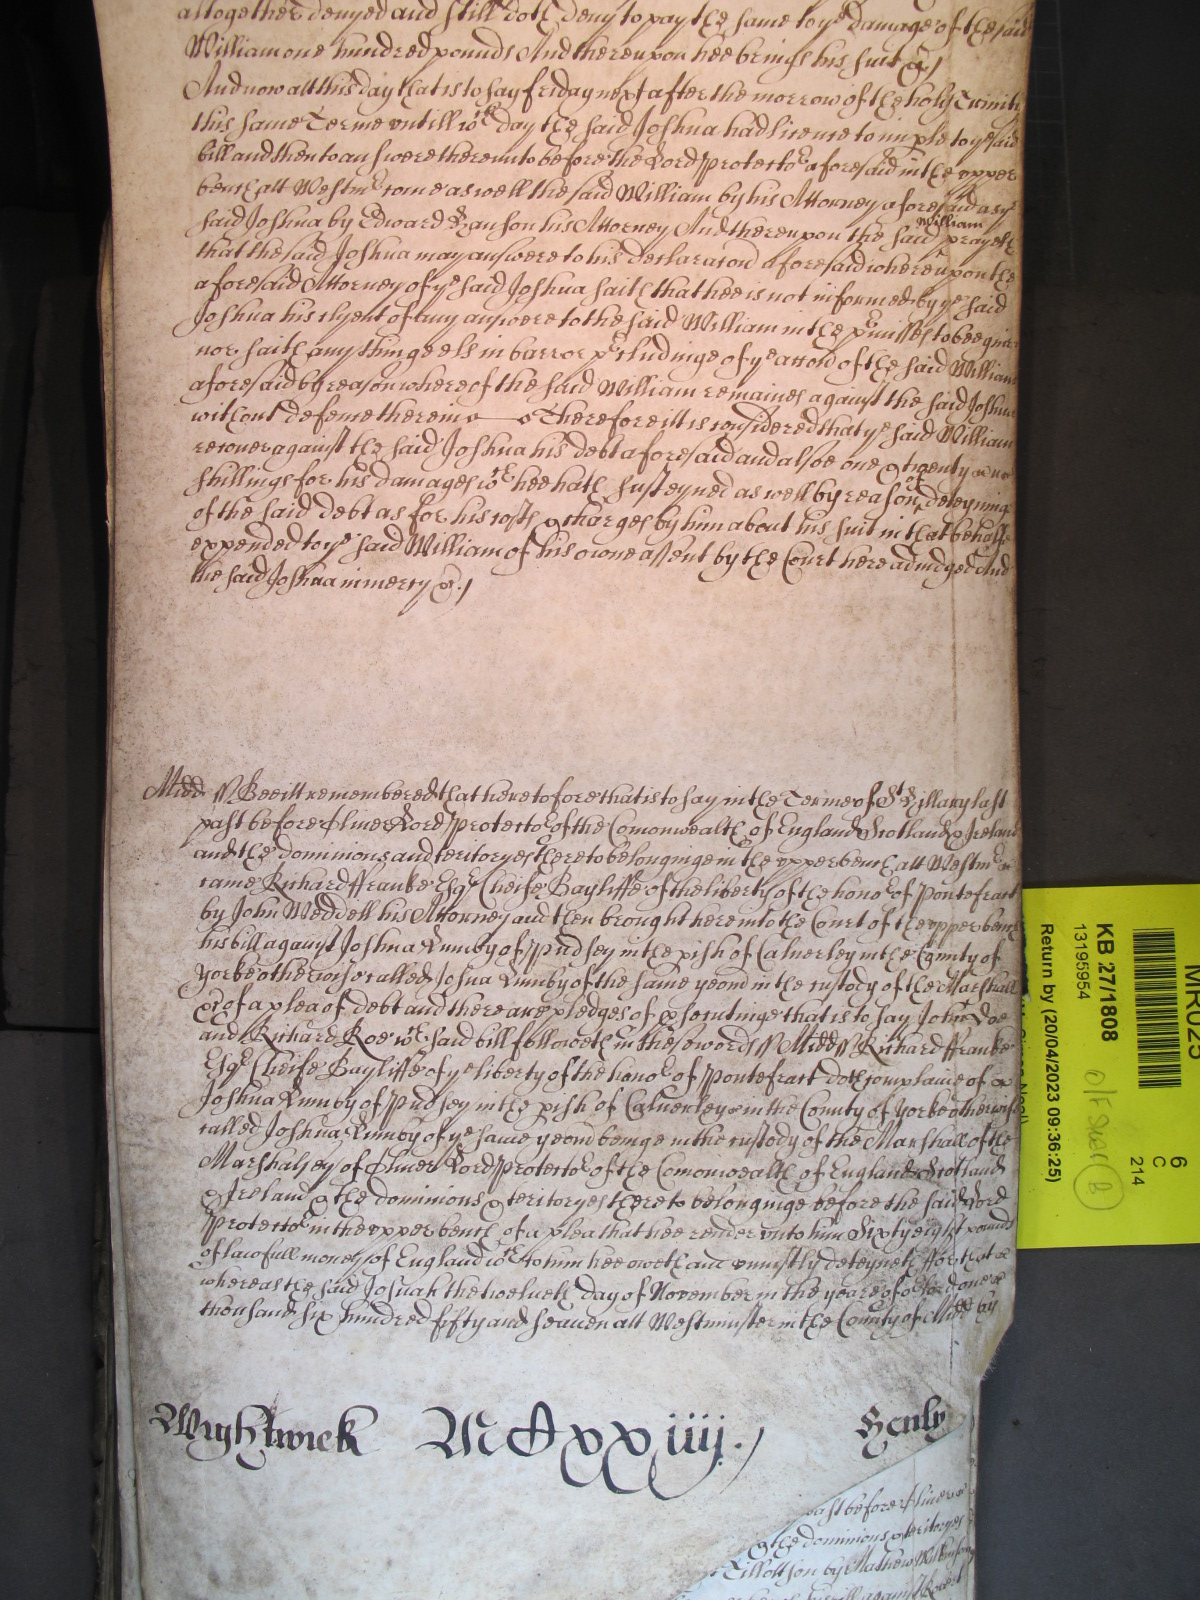 altogether denyed and still doth deny to pay the same to ye damage of the said
William one hundred pounds And thereupon hee brings his suit &c/
And now att this day that is to say friday next after the morrow of the holy Trinity
this same Terme untill wch day the said Joshua had licence to imple to ye said
bill and then to answere thereunto before the Lord Protector aforesaid in the upper
bench att Westmr come as well the said William by his Attorney aforesaid as ye
said Joshua by Edward Hanson his Attorney And thereupon the said William prayeth
that the said Joshua may answere to his declaracon aforesaid whereupon the
aforesaid Attorney of ye said Joshua saith that hee is not informed by ye said
Joshua his clyent of any answere to the said William in the pmisses to bee given
nor saith any thinge els in barr or pcludinge of ye accon of the said William
aforesaid by reason whereof the said William remaines against the said Joshua
without defence therein Therefore itt is considered that ye said William
recover against the said Joshua his debt aforesaid and alsoe one & twenty
shillings for his damages wch hee hath susteyned as well by reason of deteyning
of the said debt as for his costs & charges by him about his suit in that behalfe
expended to ye said William of his owne assent by the Court here adiudged And
the said Joshua in mercy &c/
Midd // Bee itt remembered that heretofore that is to say in the Terme of St Hillary last
past before Oliver Lord Protector of the Comonwealth of England Scotland & Ireland
and the dominions and teritoryes thereto belonginge in the upper bench att Westmr
came Richard ffranke Esqr Cheife Bayliffe of the liberty of the honor of Pontefract
by John Weddell his Attorney and then brought here into the Court of the upper bench
his bill against Joshua Lumby of Pudsey in the pish of Calverley in the County of
Yorke otherwise called Joshua Lumby of the same yeom in the custody of the Marshall
&c of a plea of debt and there are pledges of psecutinge that is to say John Doe
and Richard Roe wch said bill followeth in these words // Midd // Richard ffranke
Esqr Cheife Bayliffe of ye liberty of the honor of Pontefract doth complaine of
Joshua Lumby of Pudsey in the pish of Calverley in the County of Yorke otherwise
called Joshua Lumby of ye same yeom beinge in the custody of the Marshall of the
Marshalsey of Oliver Lord Protector of the Comonwealth of England Scotland
& Ireland & the dominions & teritoryes thereto belonginge before the said Lord
Protector in the upper bench of a plea that hee render unto him Sixty eight pounds
of lawfull money of England wch to him hee oweth and uniustly deteyneth ffor that
whereas the said Josuah the twelveth day of November in the yeare of or Lord one
thousand six hundred fifty and seaven att Westminster in the County of Midd by
Wightwick MCxxiiij./ Henly
past before Oliver
& the dominions & teritoryes
Tillotson by Mathew Wilkinson
bill against
MR025
KB 27/1808
13195954
Return by (20/04/2023 09:36:25)
6
C
214